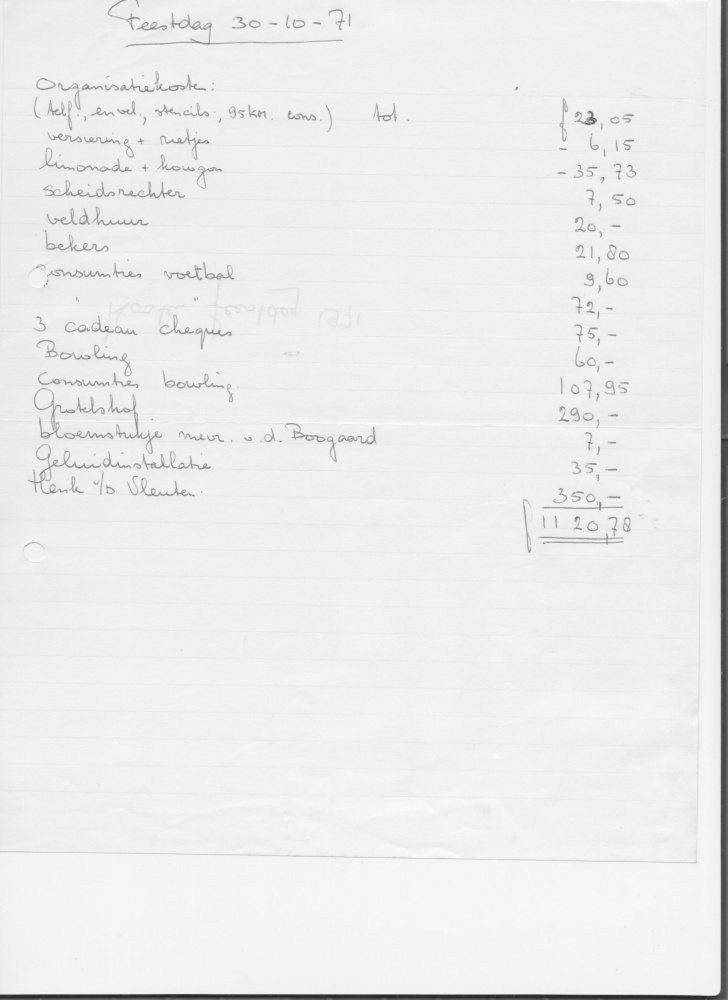 Feestdag 30-10-71
Organisatiekosten:
(telf., envel., stencils, 95 KM. cons.) tot. f 23,05
versiering + rietjes - 6,15
limonade + kauwgom - 35,73
scheidsrechter 7,50
veldhuur 20,-
bekers 21,80
Consumties voetbal 9,60
" " 72,-
3 cadeau cheques 75,-
Bowling 60,-
Consumties bowling 107,95
Grotelshof 290,-
bloemstukje mevr. v.d. Boogaard 7,-
Geluidinstallatie 35,-
Henk v/d Vleuten. 350,-
f 1120,78